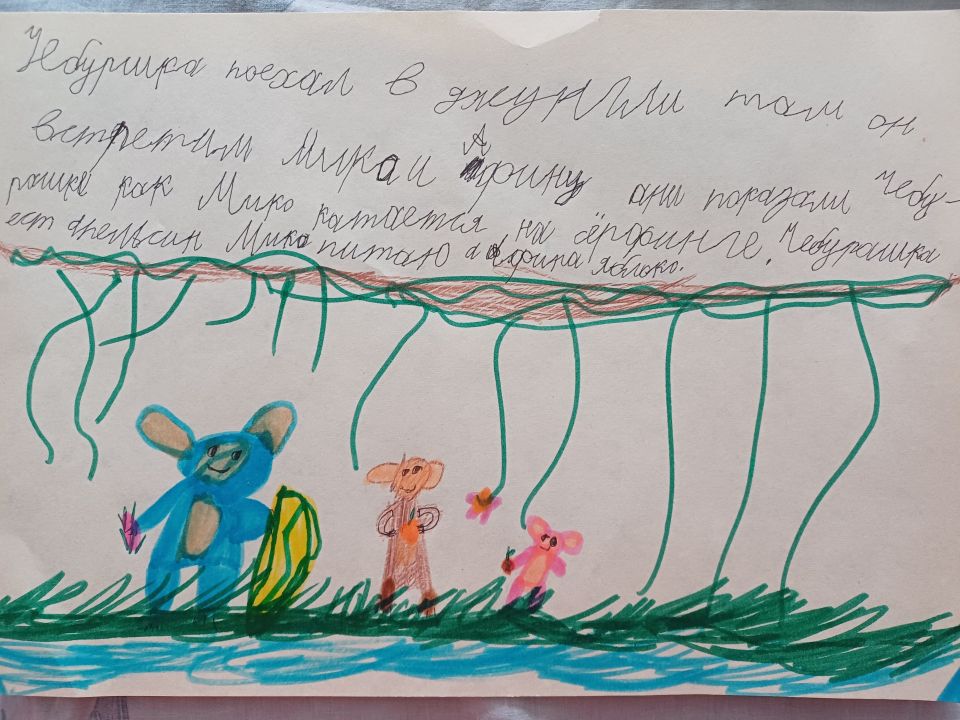 Чебурика поехал в джунгли там он
встретим Мика и Афину ани показали Чебу-
рашке как Мико катается на сёрфинге. Чебурашка
ест апельсин Мика питаю а Афина яблоко.